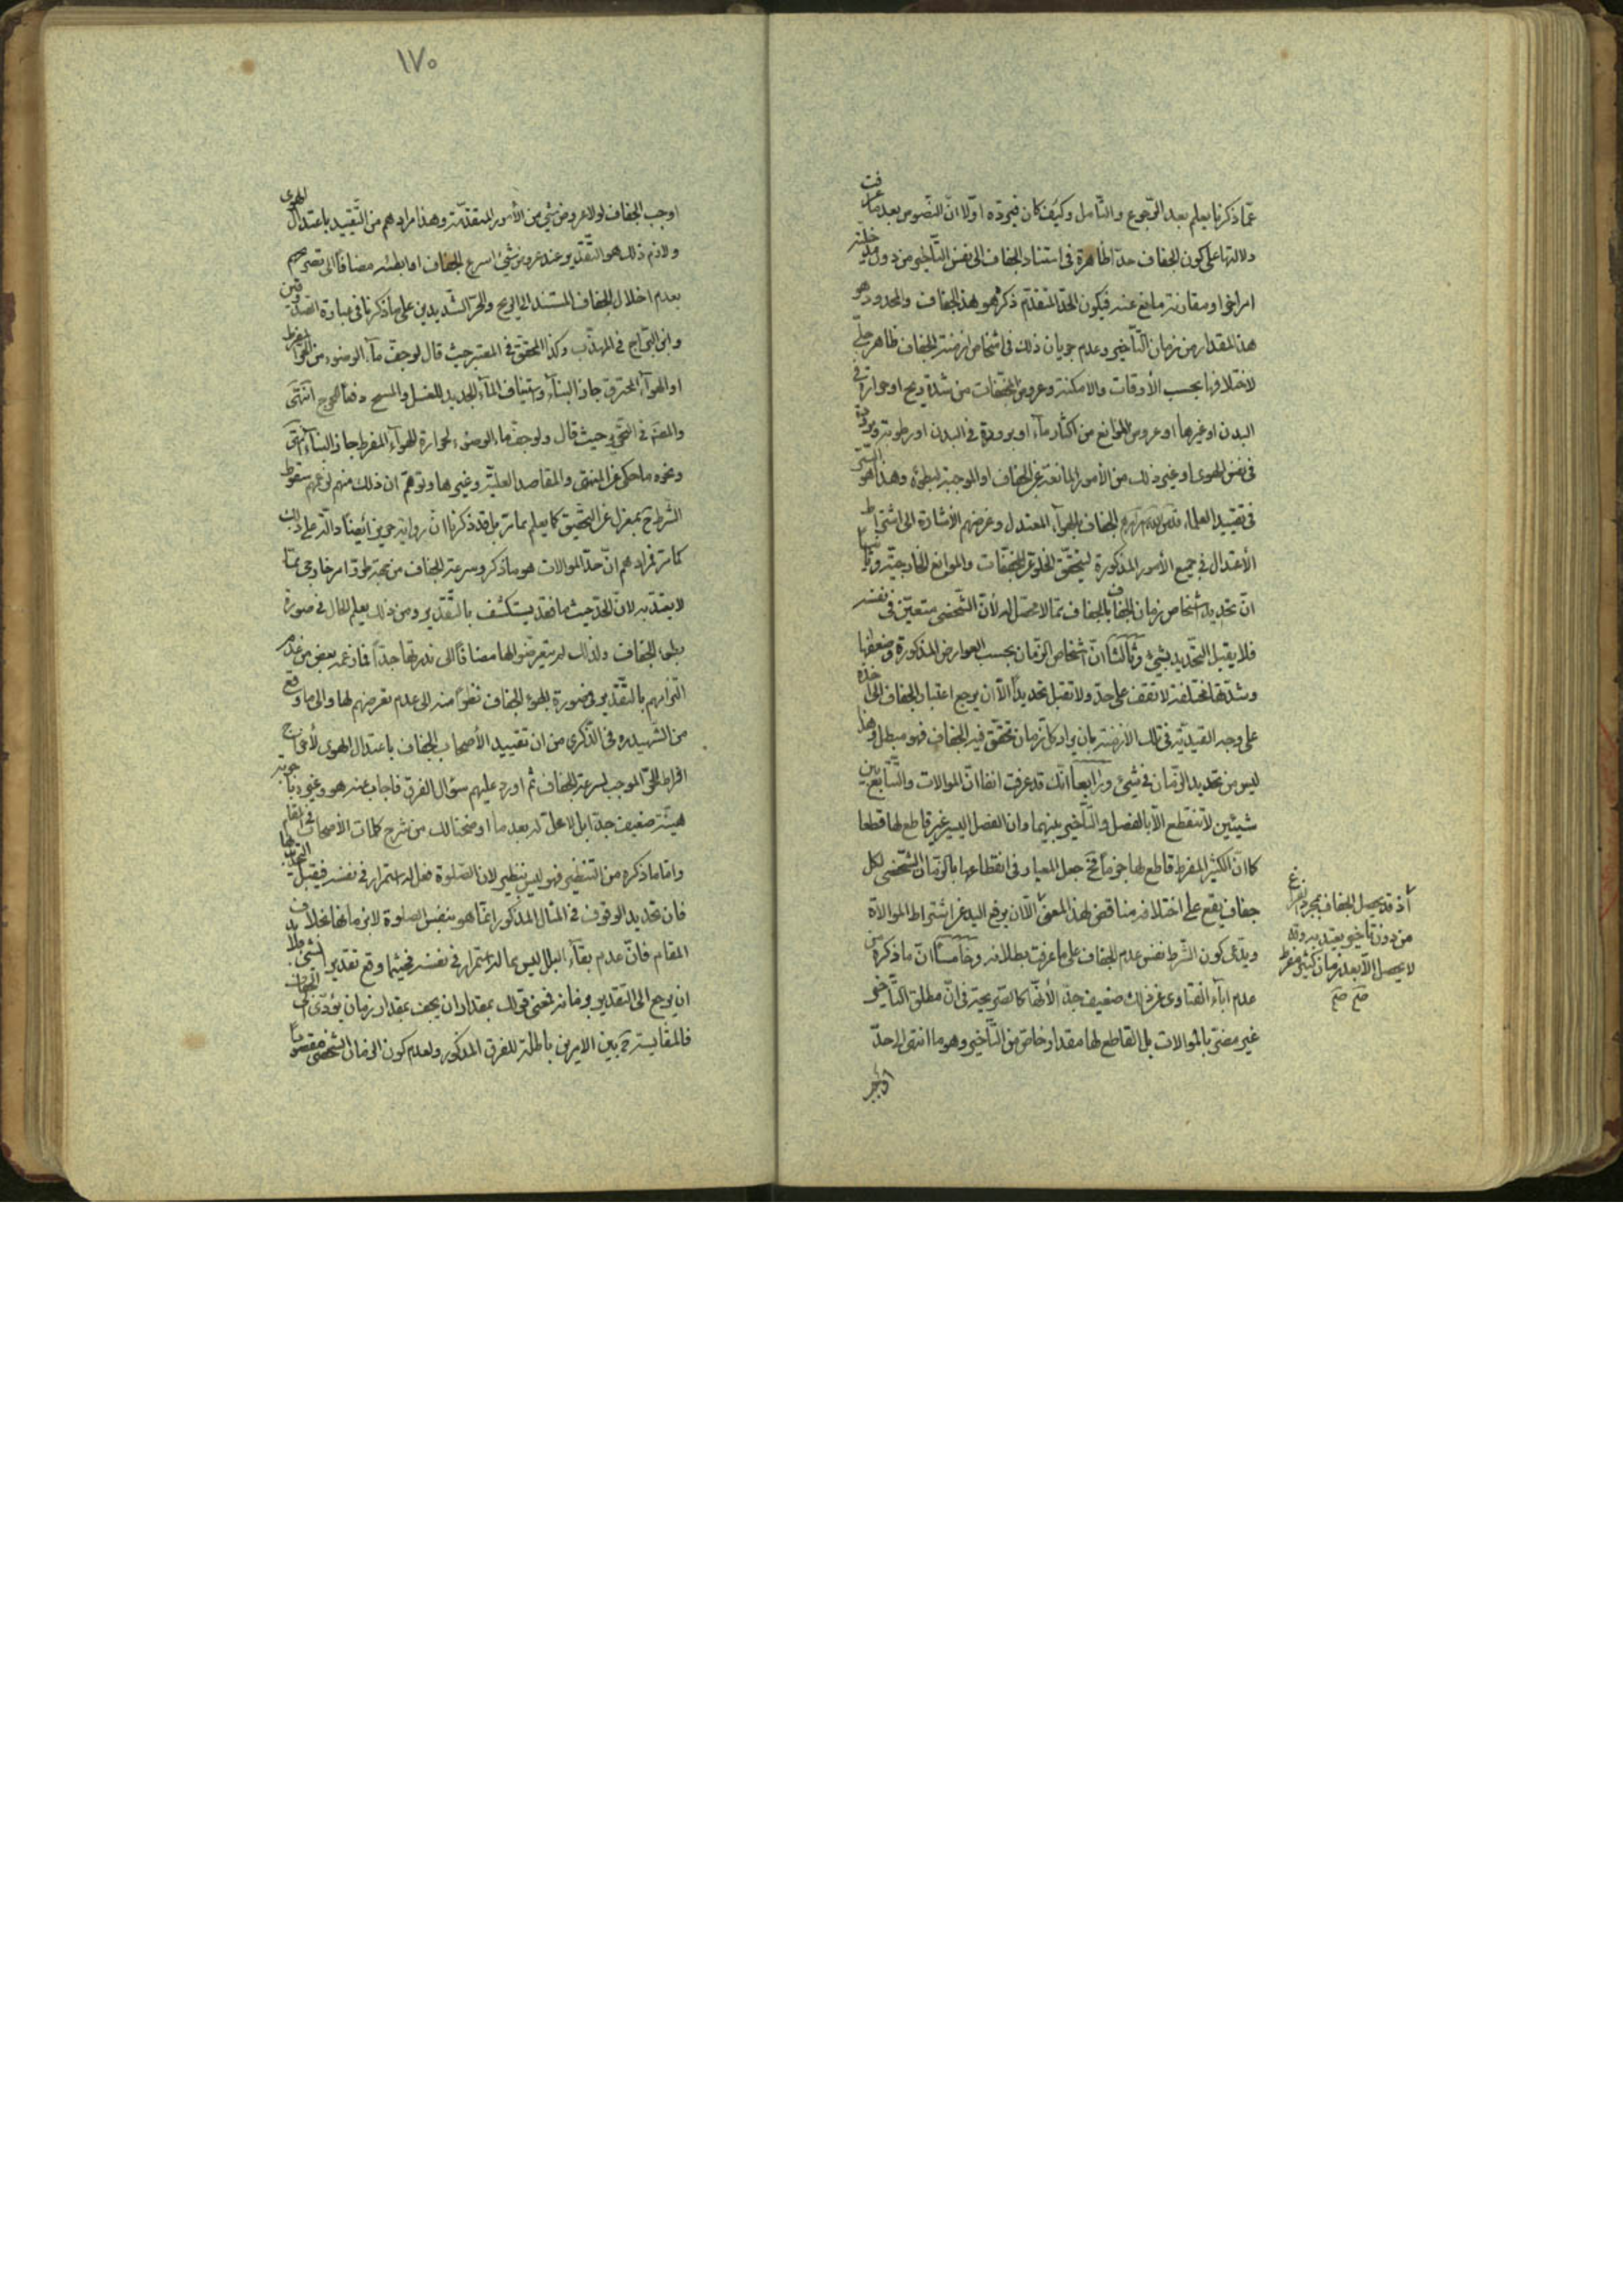 عمّا ذكرنا يعلم بعد الرّجوع والتّأمل وكيف كان فيردّه اوّلا انّ النّصوص بعد ما عرفت
دلالتها على كون الجفاف حدّا ظاهرة في استناد الجفاف الى نفس التّأخير من دون مدخليّة
امر اخر او مقارنة مانع عنه فيكون الحدّ المتقدّم ذكره هو هذا الجفاف والمحدود هو
هذا المقدار من زمان التّأخير وعدم جريان ذلك في اشخاص ازمنة الجفاف ظاهر جليّ
لاختلافها بحسب الأوقات والامكنة وعروض المجفّفات من شدّة ريح او حرارة في
البدن او غيرها او عروض الموانع من اكثار ماء او برودة في البدن او رطوبة وبرودة
في نفس الهوى او غير ذلك من الأمور المانعة عن الجفاف او الموجبة لبطوئه وهذا هو السّرّ
في تقييد العلماء الجفاف بالهوآء المعتدل وغرضهم الأشارة الى اشتراط
الأعتدال في جميع الأمور المذكورة ليتحقّق الخلوّ عن المجفّفات والموانع الخارجيّة وثانيا
انّ تحديد اشخاص زمان الجفاف بالجفاف ممّا لا محصّل له لأنّ الشّخص متعيّن في نفسه
فلا يقبل التّحديد بشيئ وثالثا انّ اشخاص الزّمان بحسب العوارض المذكورة وضعفها
وشدّتها مختلفة لا تقف على حدّ ولا تقبل تحديداً الّا ان يرجع اعتبار الجفاف الى اخذه
على وجه القيديّة في تلك الأزمنة بان يراد كلّ زمان تحقّق فيه الجفاف فهو مبطل وهذا
ليس من تحديد الزّمان في شيئ ورابعاً انّك قد عرفت انفا انّ الموالات والتّتابع بين
شيئين لا تنقطع الّا بالفصل والتّأخير بينهما وان الفصل اليسير غير قاطع لها قطعا
كما انّ الكثير المفرط قاطع لها جزماً فح جعل المعيار في انقطاعها بالزّمان الشّخصي لكل
جفاف يقع على اختلافه مناقض لهذا المعنى الّا ان يرفع اليد عن اشتراط الموالاة
ويدّعى كون الشّرط نفس عدم الجفاف على ما عرفت بطلانه وخامسا انّ ما ذكره من
عدم اباء الفتاوى عن ذلك ضعيف جدّا لأنّها كالصّريحة في انّ مطلق التّأخير
غير مضرّ بالموالات بل القاطع لها مقدار خاصّ من التّأخير وهو ما انتهى الى حدّ
أذ قد يحصل الجفاف بمجرد
من دون تأخير يعتدّ به وقد
لا يحصل الّا بعد زمان كثير مفرط
صح صح
١٧٠
اوجب الجفاف لولا عروض شيئ من الأمور المتقدّمة وهذا مرادهم من التّقييد باعتدال الهوى
ولازم ذلك هو التّقدير عند عروض شيئ اسرع الجفاف او ابطئه مضافاً الى تصريحهم
بعدم اخلال الجفاف المستند الى الريح والحرّ الشّديدين على ما ذكرنا في عبارة الصّدوقين
وابن البرّاج في المهذّب وكذا المحقّق في المعتبر حيث قال لو جفّ مآء الوضوء من الحرّ المفرط
او الهوآء المحترق جاز البنآء واستيناف المآء الجديد للغسل والمسح دفعاً للحرج انتهى
والعلّامة في التّحرير حيث قال ولو جفّ ماء الوضوء لحرارة الهوآء المفرط جاز البنآء انتهى
ونحوه ما حكي عن المنتهى والمقاصد العليّة وغيرها وتوهّم ان ذلك منهم لزعمهم سقوط
الشّرط ح بمعزل عن التّحقيق كما يعلم بما مرّ بل قد ذكرنا انّ رواية حريز أيضاً دالّة على ذلك
كما مرّ فمرادهم انّ حدّ الموالات هو ما ذكر وسرعة الجفاف من جهة طروّ امر خارجي ممّا
لا يعتدّ به لانّ الحدّ حينئذ قد يستكشف بالتّقدير ومن ذلك يعلم الحال في صورة
بطوء الجفاف ولذلك لم يتعرّضوا لها مضافاً الى ندرتها جدّاً فما زعمه بعض من عدم
التزامهم بالتّقدير في صورة بطوء الجفاف نظراً منه الى عدم تعرضهم لها والى ما وقع
من الشّهيد ره في الذّكرى من ان تقييد الأصحاب الجفاف باعتدال الهوى لأخراج
افراط الحرّ الموجب لسرعة الجفاف ثم اورد عليهم سؤال الفرق فاجاب عنه هو وغيره باجوبة
هيّنة ضعيف جدّا بل لا محلّ له بعد ما اوضحنا لك من شرح كلمات الأصحاب في المقام
وامّا ما ذكره من التنظير فهو ليس بنظير لان الصّلوة فعل له استمرار في نفسه فيقبل التّحديد بها
فان تحديد الوقوف في المثال المذكور انّما هو بنفس الصلوة لا بزمانها بخلاف
المقام فانّ عدم بقآء البلل ليس ممّا له استمرار في نفسه فحيثما وقع تقدير الشّيئ به فلا بد
ان يرجع الى التّقدير بزمانه فمعنى قولك بمقدار ان يجف بمقدار زمان يؤدّى الى الجفاف
فالمقايسة ح بين الامرين باطلة للفرق المذكور ولعدم كون الزمان الشّخصي مقصوداً